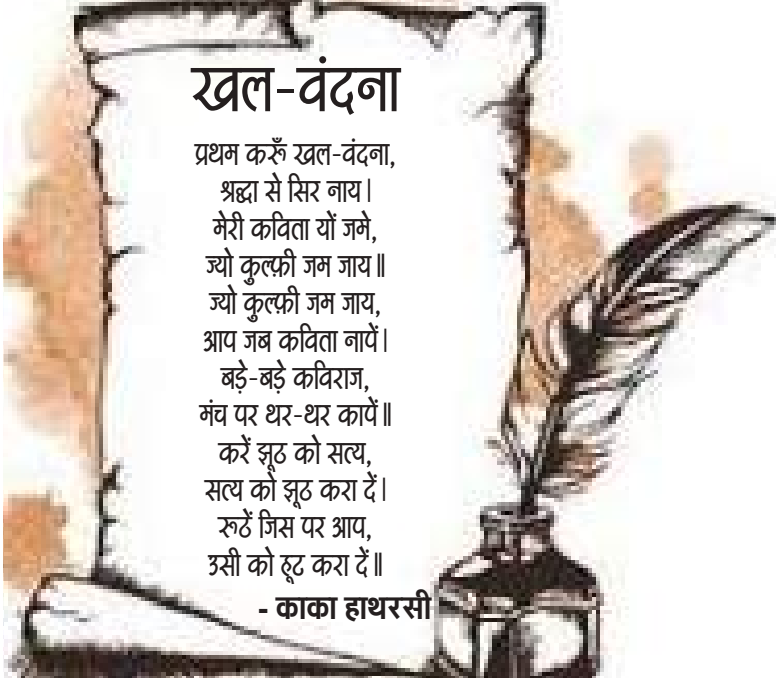 खल-वंदना
प्रथम करूँ खल-वंदना,
श्रद्धा से सिर नाय।
मेरी कविता यों जमे,
ज्यो कुल्फ़ी जम जाय॥
ज्यो कुल्फ़ी जम जाय,
आप जब कविता नापें।
बड़े-बड़े कविराज,
मंच पर थर-थर कापें॥
करें झूठ को सत्य,
सत्य को झूठ करा दें।
रूठें जिस पर आप,
उसी को हूट करा दें॥
- काका हाथरसी